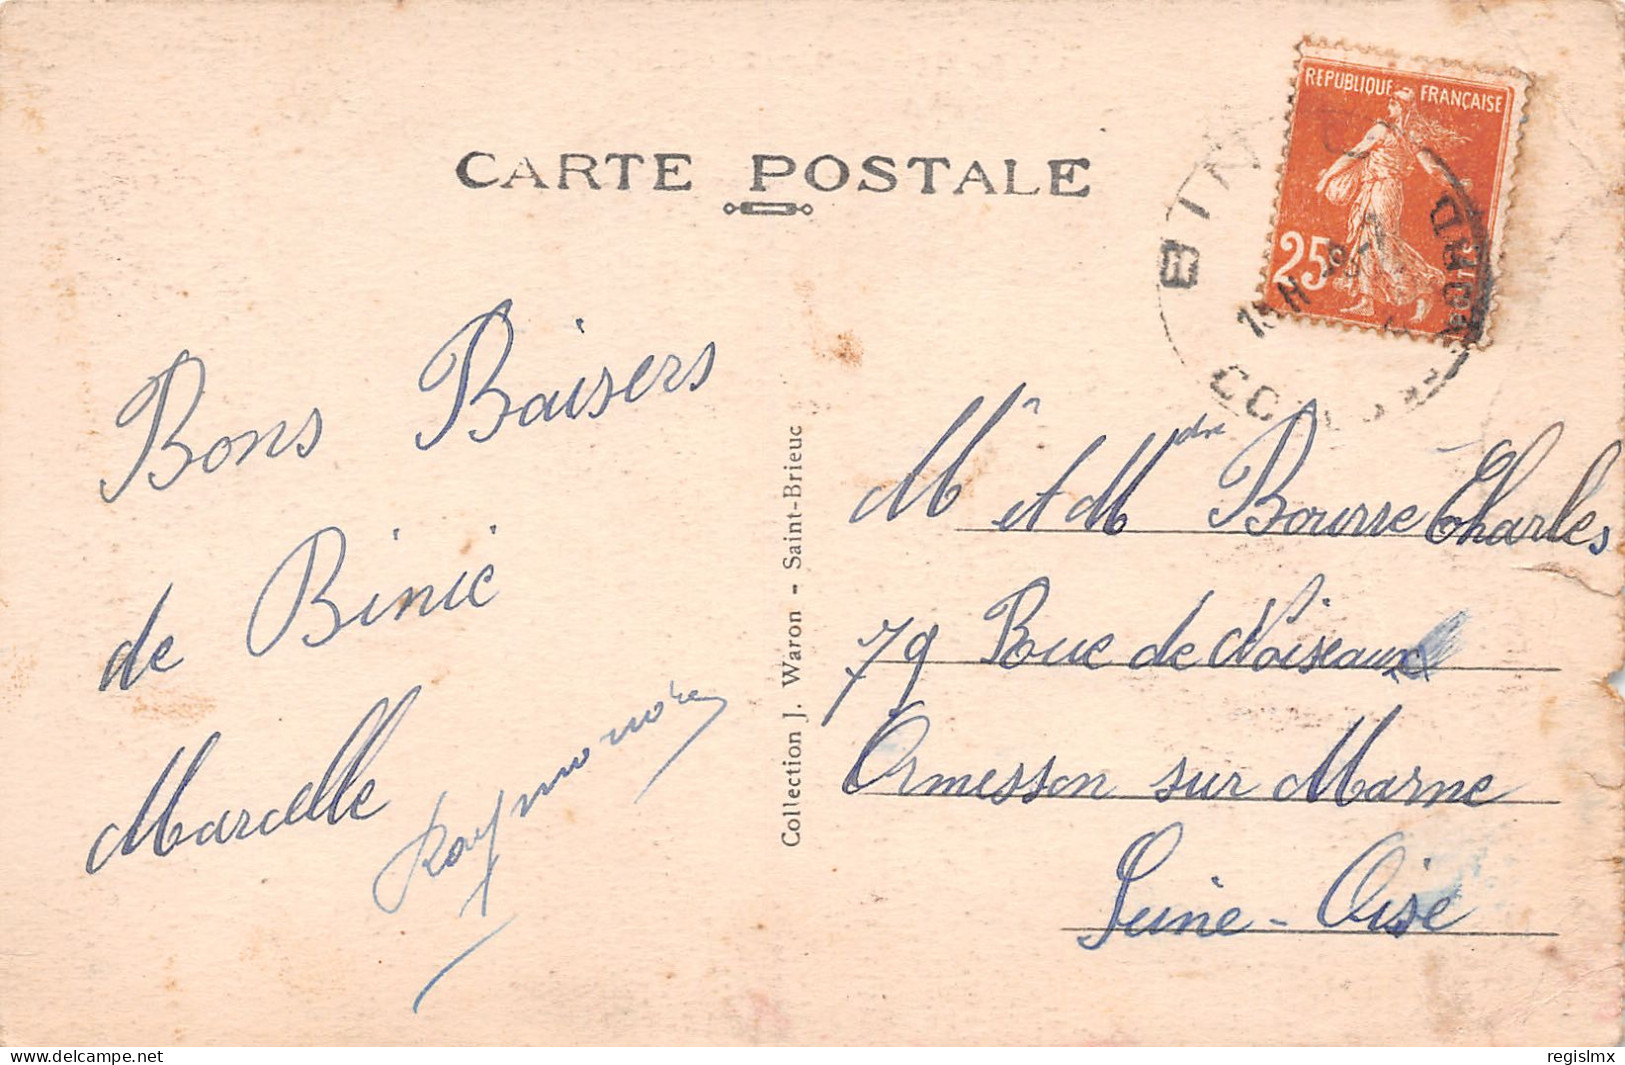 CARTE POSTALE
REPUBLIQUE FRANÇAISE
25
BINIC
COTES DU NORD
Bons Baisers
de Binic
Marcelle
Raymonde
Collection J. Waron - Saint-Brieuc
Mr et Mdme Bourse Charles
79 Rue de Noiseaux
Ormesson sur Marne
Seine-Oise
delcampe.net
regislmx